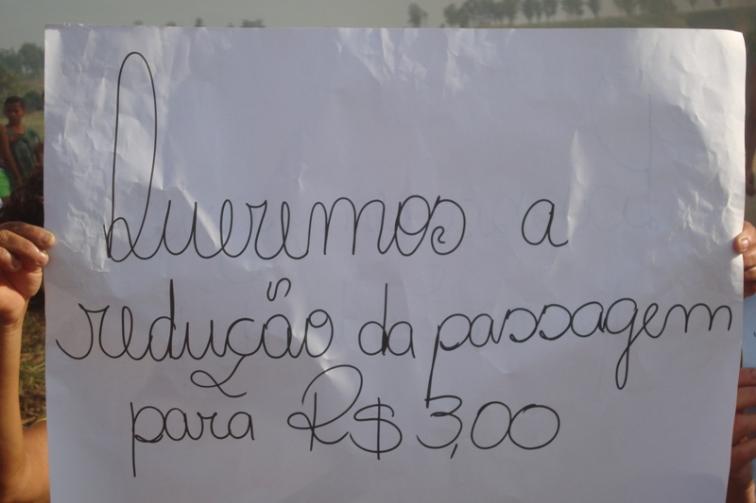 Queremos a
redução da passagem
para R$ 3,00